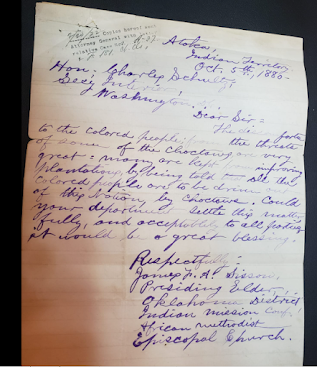 Attorney General
Atoka,
Indian Territory
Oct. 5th, 1886-
Hon. Charles Schultz
Secy Interior
Washington
Dear Sir =
to the colored people, the threats
of some of the Choctaws are very
great = many are kept improving
plantations, by being told all the
colored people are to be driven out
of the Nation by Choctaws. Could
your department settle this matter
fully, and acceptably to all parties
it would be a great blessing.
Respectfully =
James F. A. Sisson,
Presiding Elder,
Oklahoma District
Indian Mission Conf.
African Methodist
Episcopal Church.